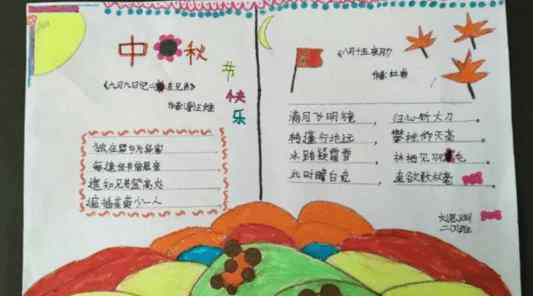 中秋
节快乐
兄弟》
作者:
每逢佳节倍思亲
遥知兄弟登高处
遍插茱萸少一人
《八月十五夜月》
作者:杜甫
满月飞明镜,归心折大刀.
转蓬行地远,攀桂仰天高.
水路疑霜雪,林栖见羽毛.
此时瞻白兔,直欲数秋毫.